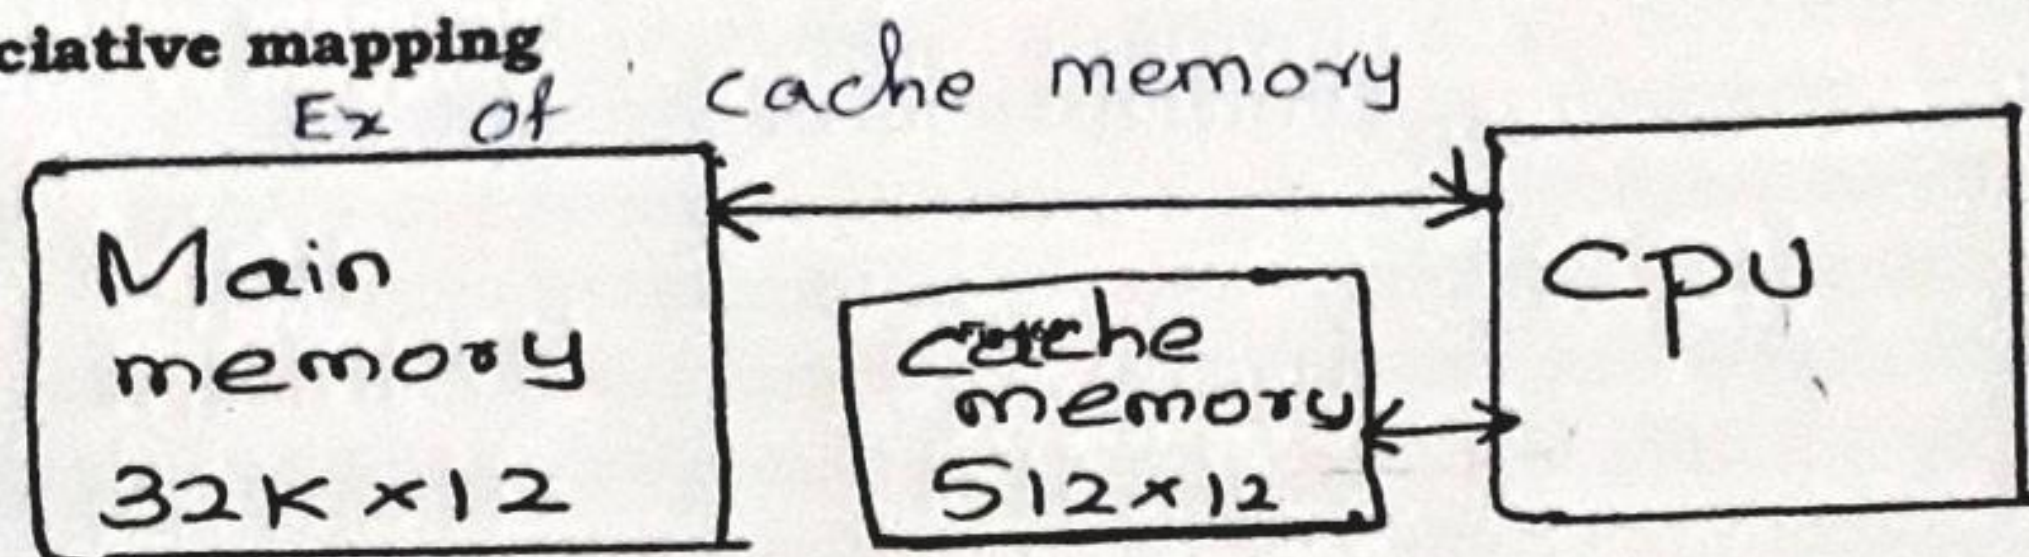 ciative mapping
Ex Of cache memory
Main
memory
32K × 12
cache
memory
512 × 12
CPU